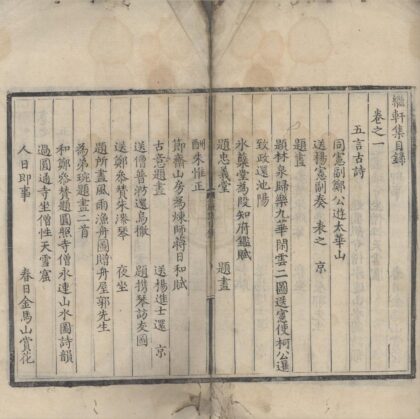 繼軒集目錄
卷之一
五言古詩
同憲副鄭公遊太華山
送楊憲副奏 表之 京
題畫
題林泉歸樂九華閑雲二圖送憲使柯公進
致政還池陽
氷蘗堂為段知府鑑賦
題忠義堂 題畫
酬朱惟正
節齋山房為煉師蔣日和賦
古意題畫 送楊進士還 京
送僧普淵還烏撒 題携琴訪友圖
送鄭參賛朱琴 夜坐
題所畫風雨漁舟圖贈舟屋郭先生
為弟琬題畫二首
和鄭參賛題圓照寺僧永連山水圖詩韻
過圓通寺坐僧性天雪窟
人日即事 春日金馬山賞花